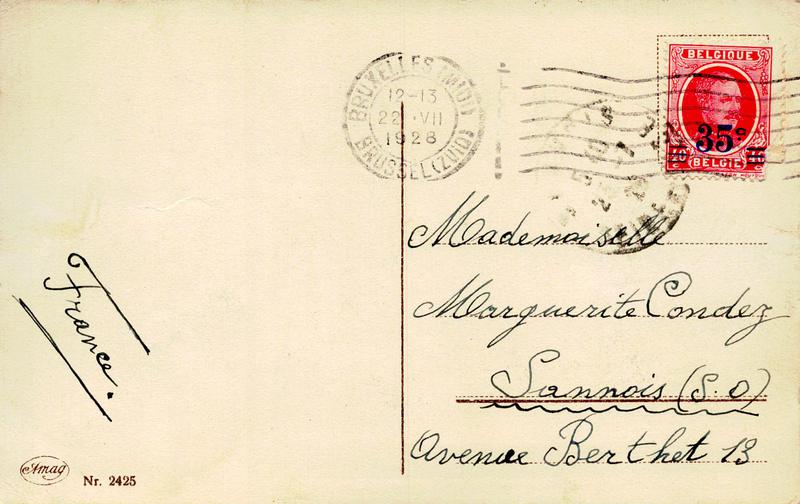 BRUXELLES (MIDI)
12-13
22 VII
1928
BRUSSEL (ZUID)
BELGIQUE
35c
10 10
BELGIË
Mademoiselle
Marguerite Condez
Sannois (S.O)
Avenue Berthet 13
France.
Amag
Nr. 2425